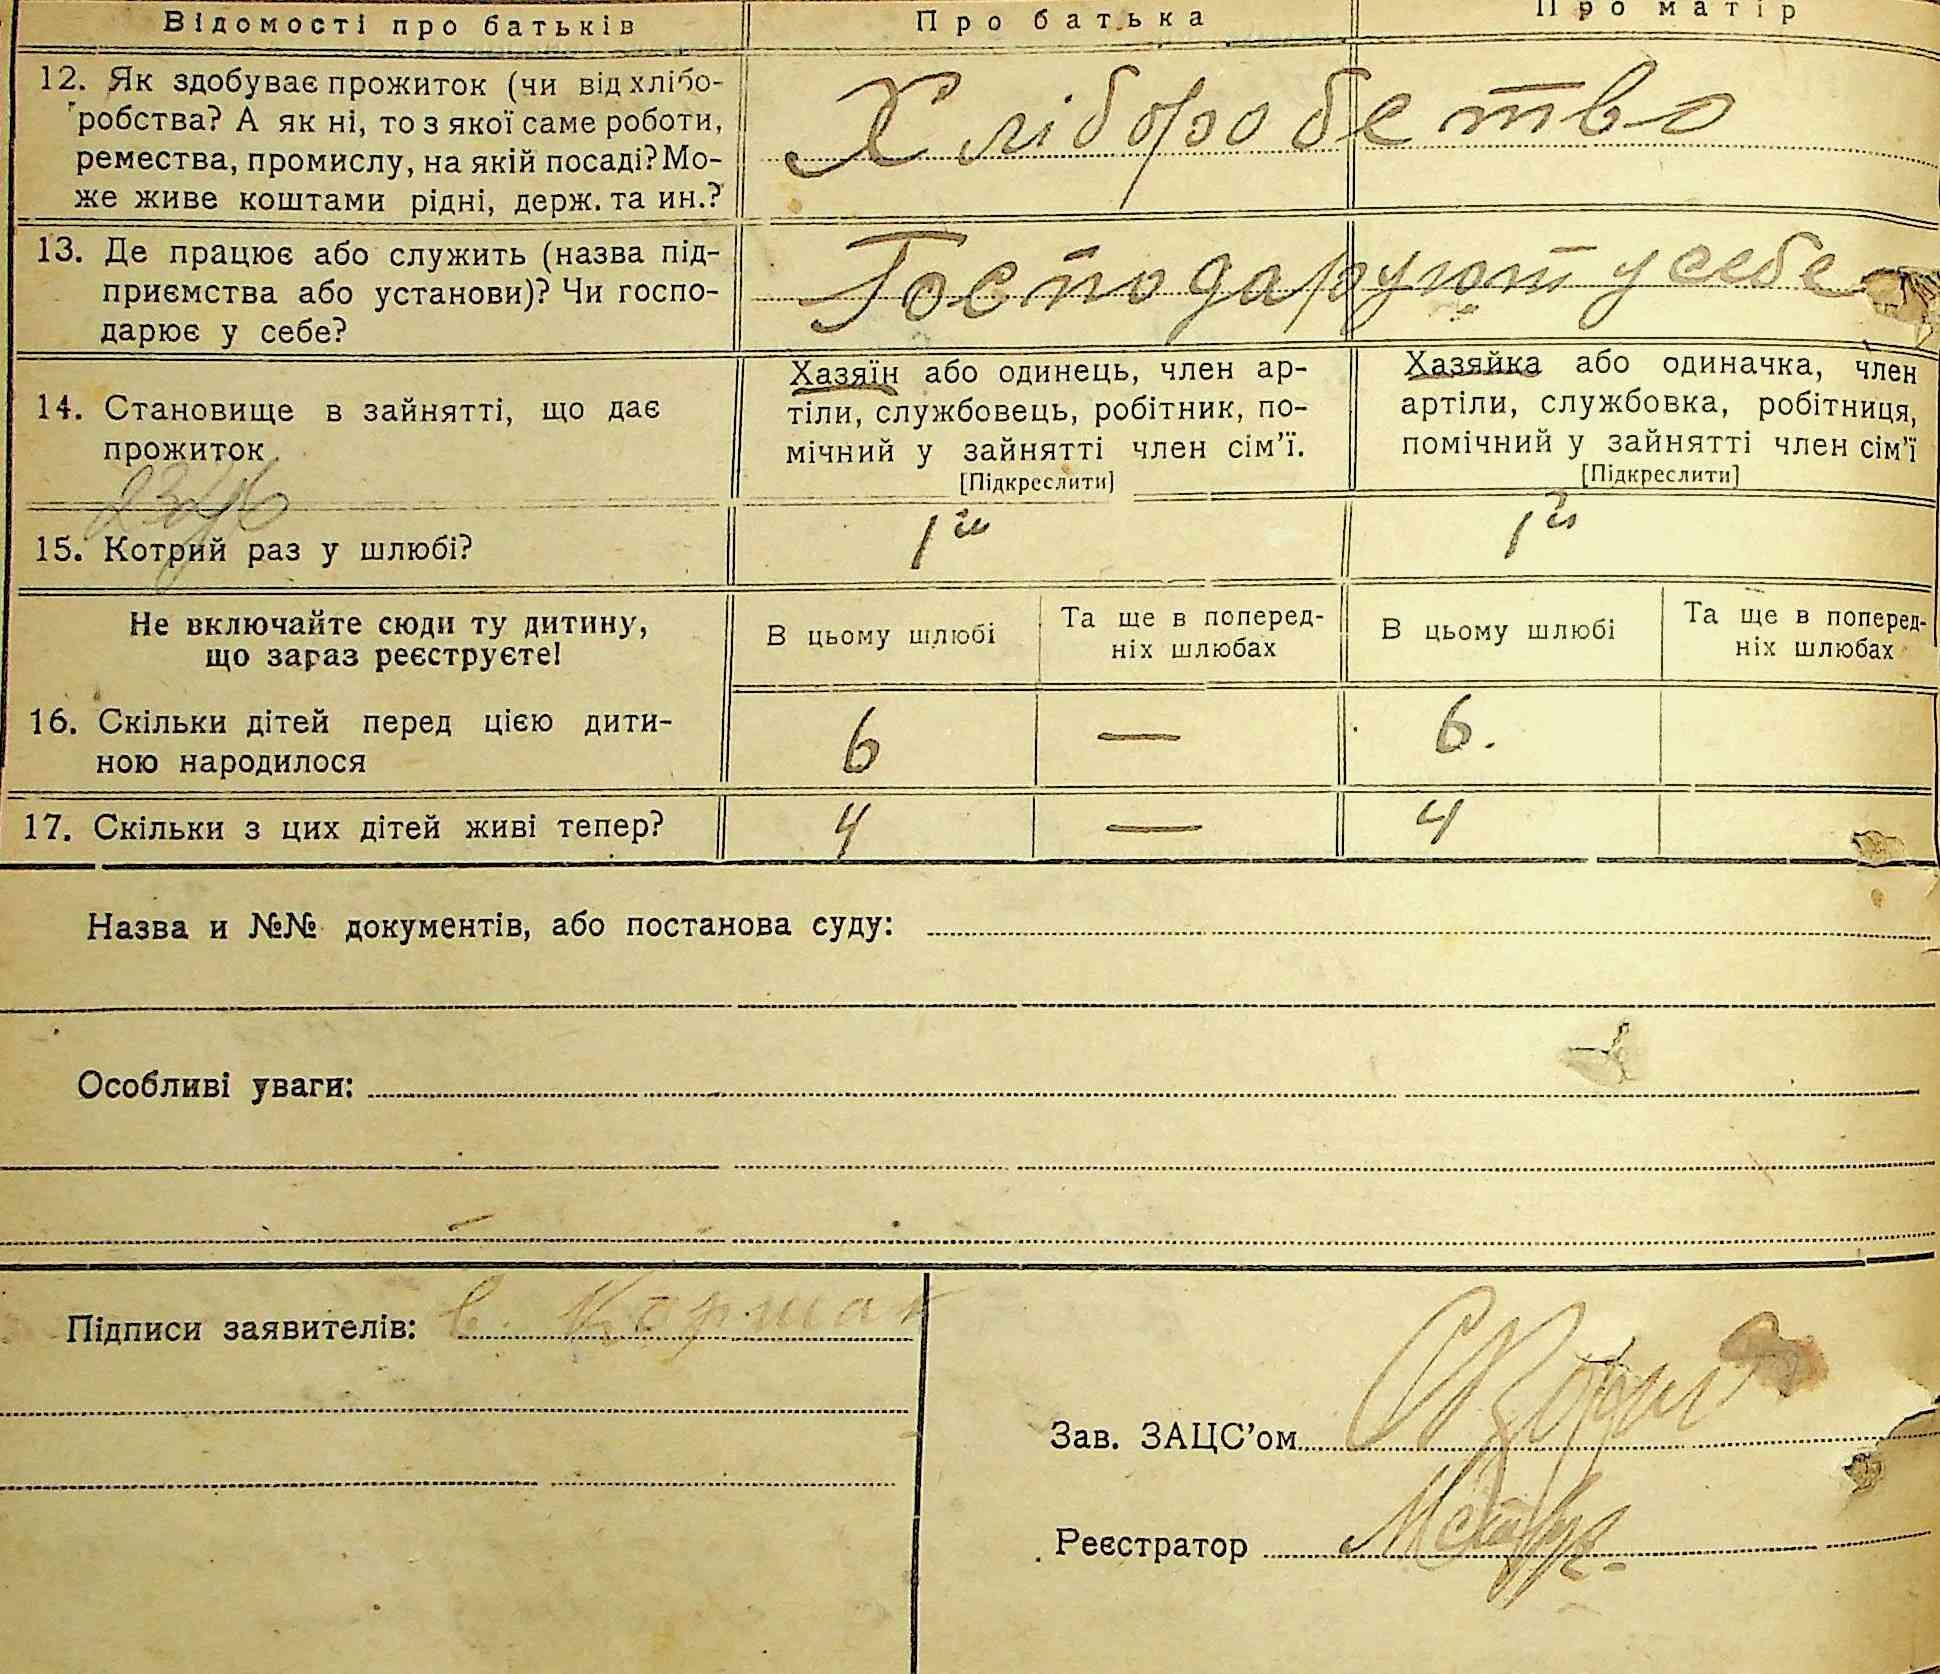 Відомості про батьків
Про батька
Про матір
12. Як здобуває прожиток (чи від хлібо-
робства? А як ні, то з якої саме роботи,
ремества, промислу, на якій посаді? Мо-
же живе коштами рідні, держ. та ин.?
Хліборобство
13. Де працює або служить (назва під-
приємства або установи)? Чи госпо-
дарює у себе?
Господарують у себе
14. Становище в зайнятті, що дає
прожиток
Хазяїн або одинець, член ар-
тіли, службовець, робітник, по-
мічний у зайнятті член сім'ї.
[Підкреслити]
Хазяйка або одиначка, член
артіли, службовка, робітниця,
помічний у зайнятті член сім'ї
[Підкреслити]
15. Котрий раз у шлюбі?
1й
1й
Не включайте сюди ту дитину,
що зараз реєструєте!
В цьому шлюбі
Та ще в поперед-
ніх шлюбах
В цьому шлюбі
Та ще в поперед-
ніх шлюбах
16. Скільки дітей перед цією дити-
ною народилося
6
—
6.
17. Скільки з цих дітей живі тепер?
4
—
4
Назва и №№ документів, або постанова суду:
Особливі уваги:
Підписи заявителів: в. Коршак
Зав. ЗАЦС'ом
Реєстратор